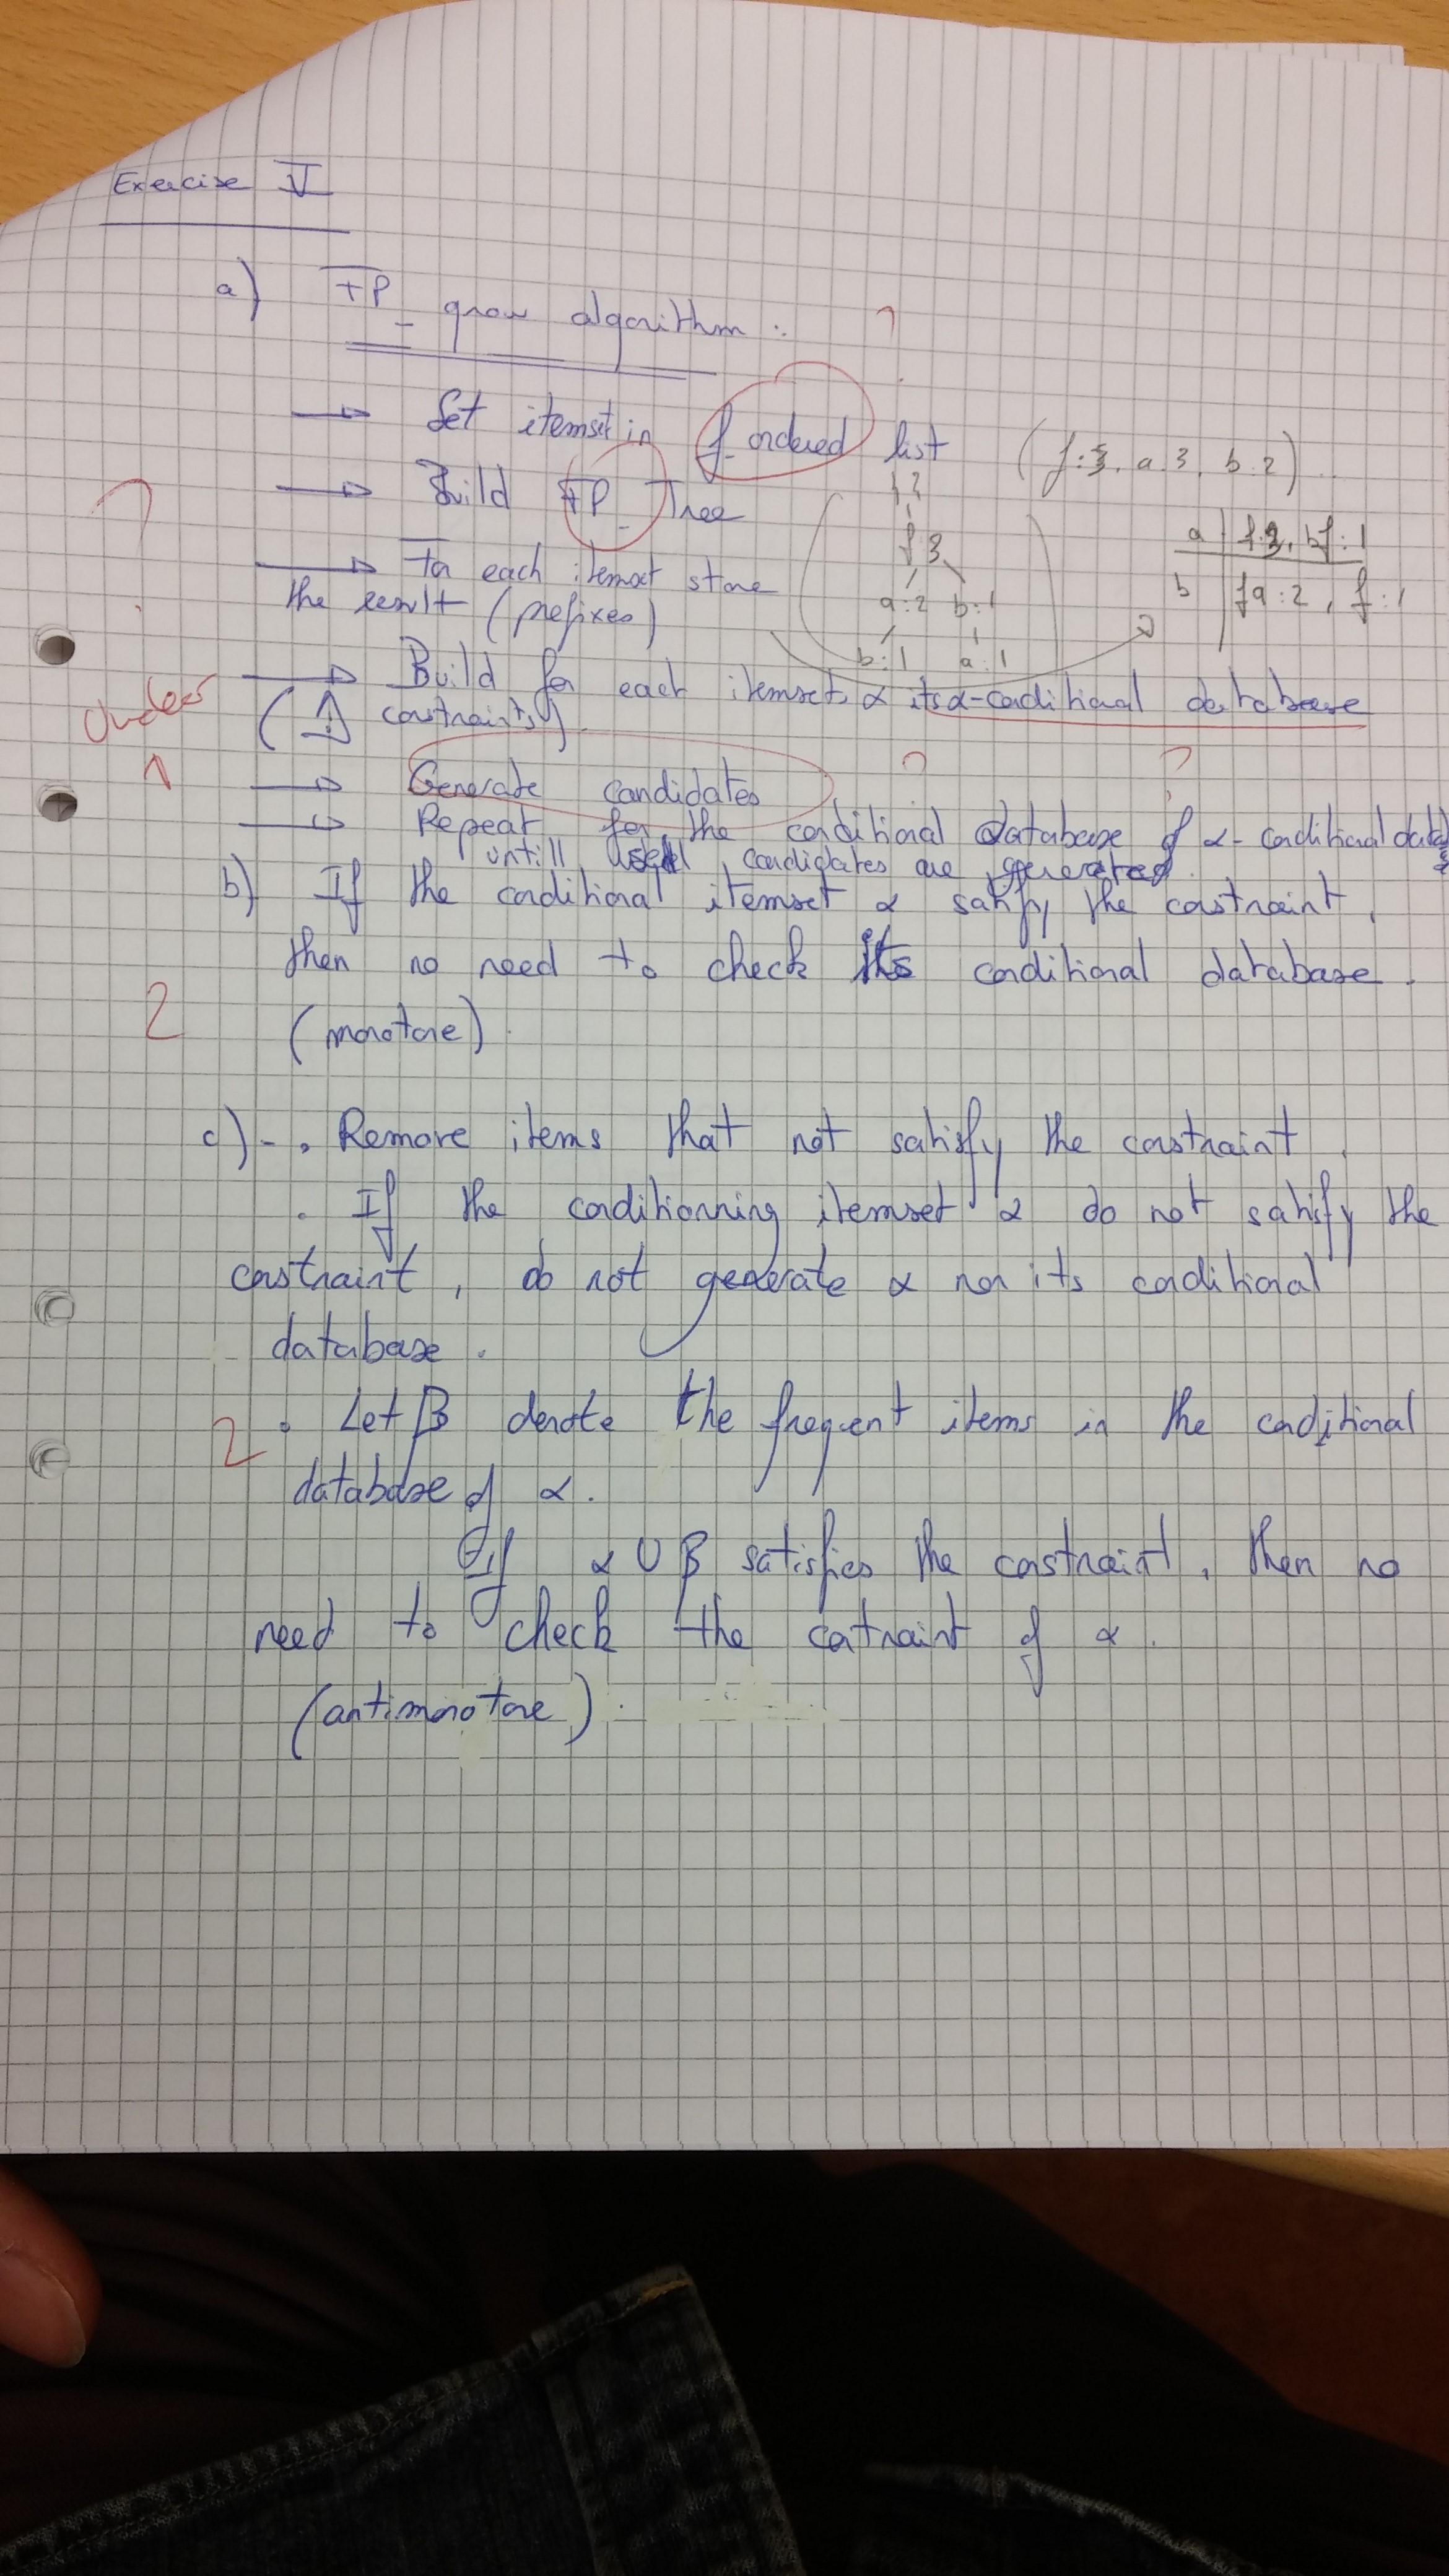 Exercise V
a) FP_ grow algorithm :
?
→ Set itemset in f_ordered list (f:3, a:3, b:2)
→ Build FP_Tree
{}
f 3
a:2 b:1
b:1 a:1
a | f:2, bf:1
b | fa:2, f:1
?
→ For each itemset store
the result (prefixes)
→ Build for each itemset α its α-conditional database
(⚠ constraints)
Unclear
1
→ Generate candidates ? ?
→ Repeat for the conditional database of α-conditional data
untill candidates are generated.
b) If the conditional itemset α satisfy the constraint,
then no need to check its conditional database.
2
(monotone).
c) - . Remove items that not satisfy the constraint.
. If the conditionning itemset α do not satisfy the
constraint, do not generate α nor its conditional
database.
2
. Let β denote the frequent items in the conditional
database of α.
If α U β satisfies the constraint, then no
need to check the contraint of α.
(antimonotone).